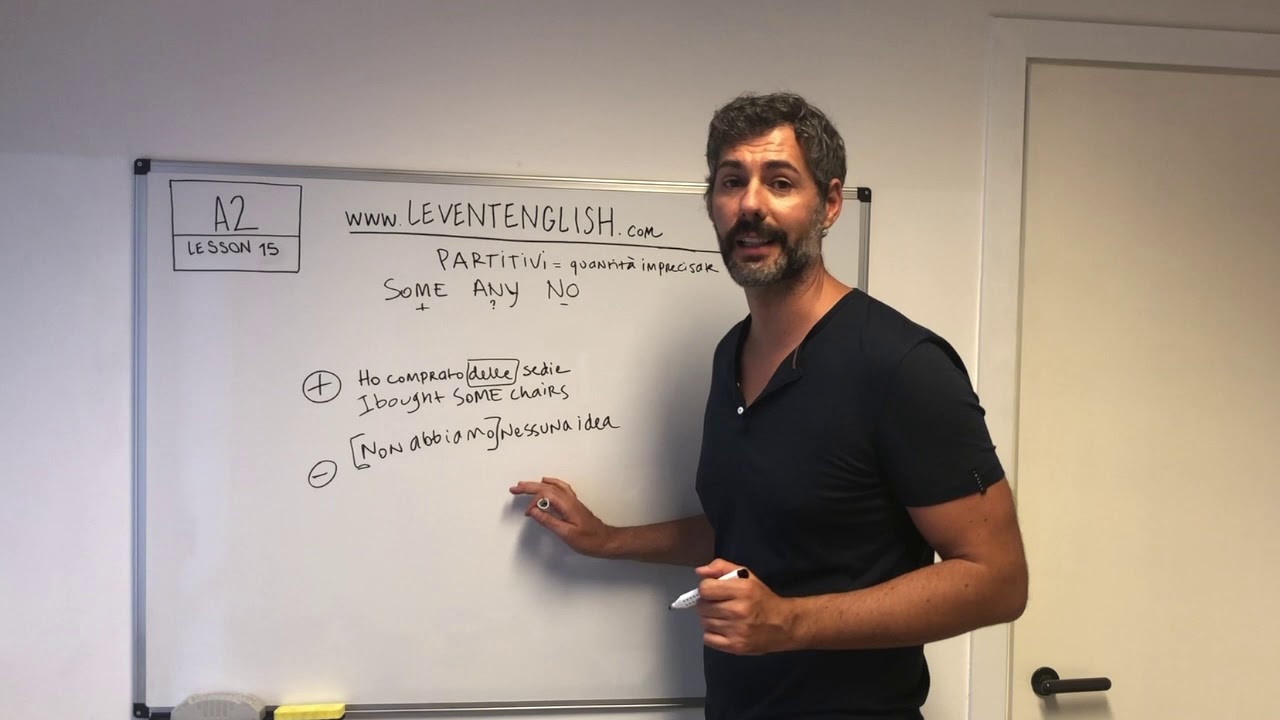 A2
LESSON 15
www.LEVENTENGLISH.com
PARTITIVI = quantità imprecisate
SOME ANY NO
+ ? -
+ Ho comprato delle sedie
I bought SOME chairs
- [Non abbiamo] nessuna idea